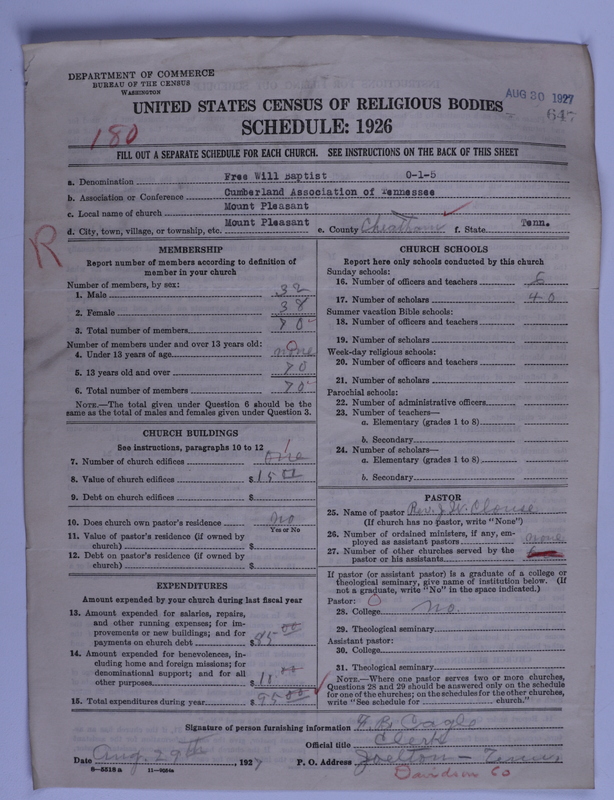 DEPARTMENT OF COMMERCE
BUREAU OF THE CENSUS
WASHINGTON
AUG 30 1927
647
UNITED STATES CENSUS OF RELIGIOUS BODIES
180
SCHEDULE: 1926
FILL OUT A SEPARATE SCHEDULE FOR EACH CHURCH. SEE INSTRUCTIONS ON THE BACK OF THIS SHEET
a. Denomination Free Will Baptist 0-1-5
b. Association or Conference Cumberland Association of Tennessee
c. Local name of church Mount Pleasant
d. City, town, village, or township, etc. Mount Pleasant e. County Cheatham f. State Tenn.
R
MEMBERSHIP
Report number of members according to definition of
member in your church
Number of members, by sex:
1. Male 32
2. Female 38
3. Total number of members 70
Number of members under and over 13 years old:
4. Under 13 years of age none
5. 13 years old and over 70
6. Total number of members 70
NOTE.—The total given under Question 6 should be the
same as the total of males and females given under Question 3.
CHURCH BUILDINGS
See instructions, paragraphs 10 to 12
7. Number of church edifices one
8. Value of church edifices $
9. Debt on church edifices $
10. Does church own pastor's residence No
Yes or No
11. Value of pastor's residence (if owned by
church) $
12. Debt on pastor's residence (if owned by
church) $
EXPENDITURES
Amount expended by your church during last fiscal year
13. Amount expended for salaries, repairs,
and other running expenses; for im-
provements or new buildings; and for
payments on church debt $
14. Amount expended for benevolences, in-
cluding home and foreign missions; for
denominational support; and for all
other purposes $
15. Total expenditures during year $ 95 00
CHURCH SCHOOLS
Report here only schools conducted by this church
Sunday schools:
16. Number of officers and teachers
17. Number of scholars 40
Summer vacation Bible schools:
18. Number of officers and teachers
19. Number of scholars
Week-day religious schools:
20. Number of officers and teachers
21. Number of scholars
Parochial schools:
22. Number of administrative officers
23. Number of teachers—
a. Elementary (grades 1 to 8)
b. Secondary
24. Number of scholars—
a. Elementary (grades 1 to 8)
b. Secondary
PASTOR
25. Name of pastor Rev. J. W. Clouse
(If church has no pastor, write "None")
26. Number of ordained ministers, if any, em-
ployed as assistant pastors none
27. Number of other churches served by the
pastor or his assistants
If pastor (or assistant pastor) is a graduate of a college or
theological seminary, give name of institution below. (If
not a graduate, write "No" in the space indicated.)
Pastor:
28. College No.
29. Theological seminary
Assistant pastor:
30. College
31. Theological seminary
NOTE.—Where one pastor serves two or more churches,
Questions 28 and 29 should be answered only on the schedule
for one of the churches; on the schedules for the other churches,
write "See schedule for church."
Signature of person furnishing information B. Cagle
Official title Clerk
Date Aug. 29th, 1927 P. O. Address Joelton - Tenn
Davidson Co
8-5518a